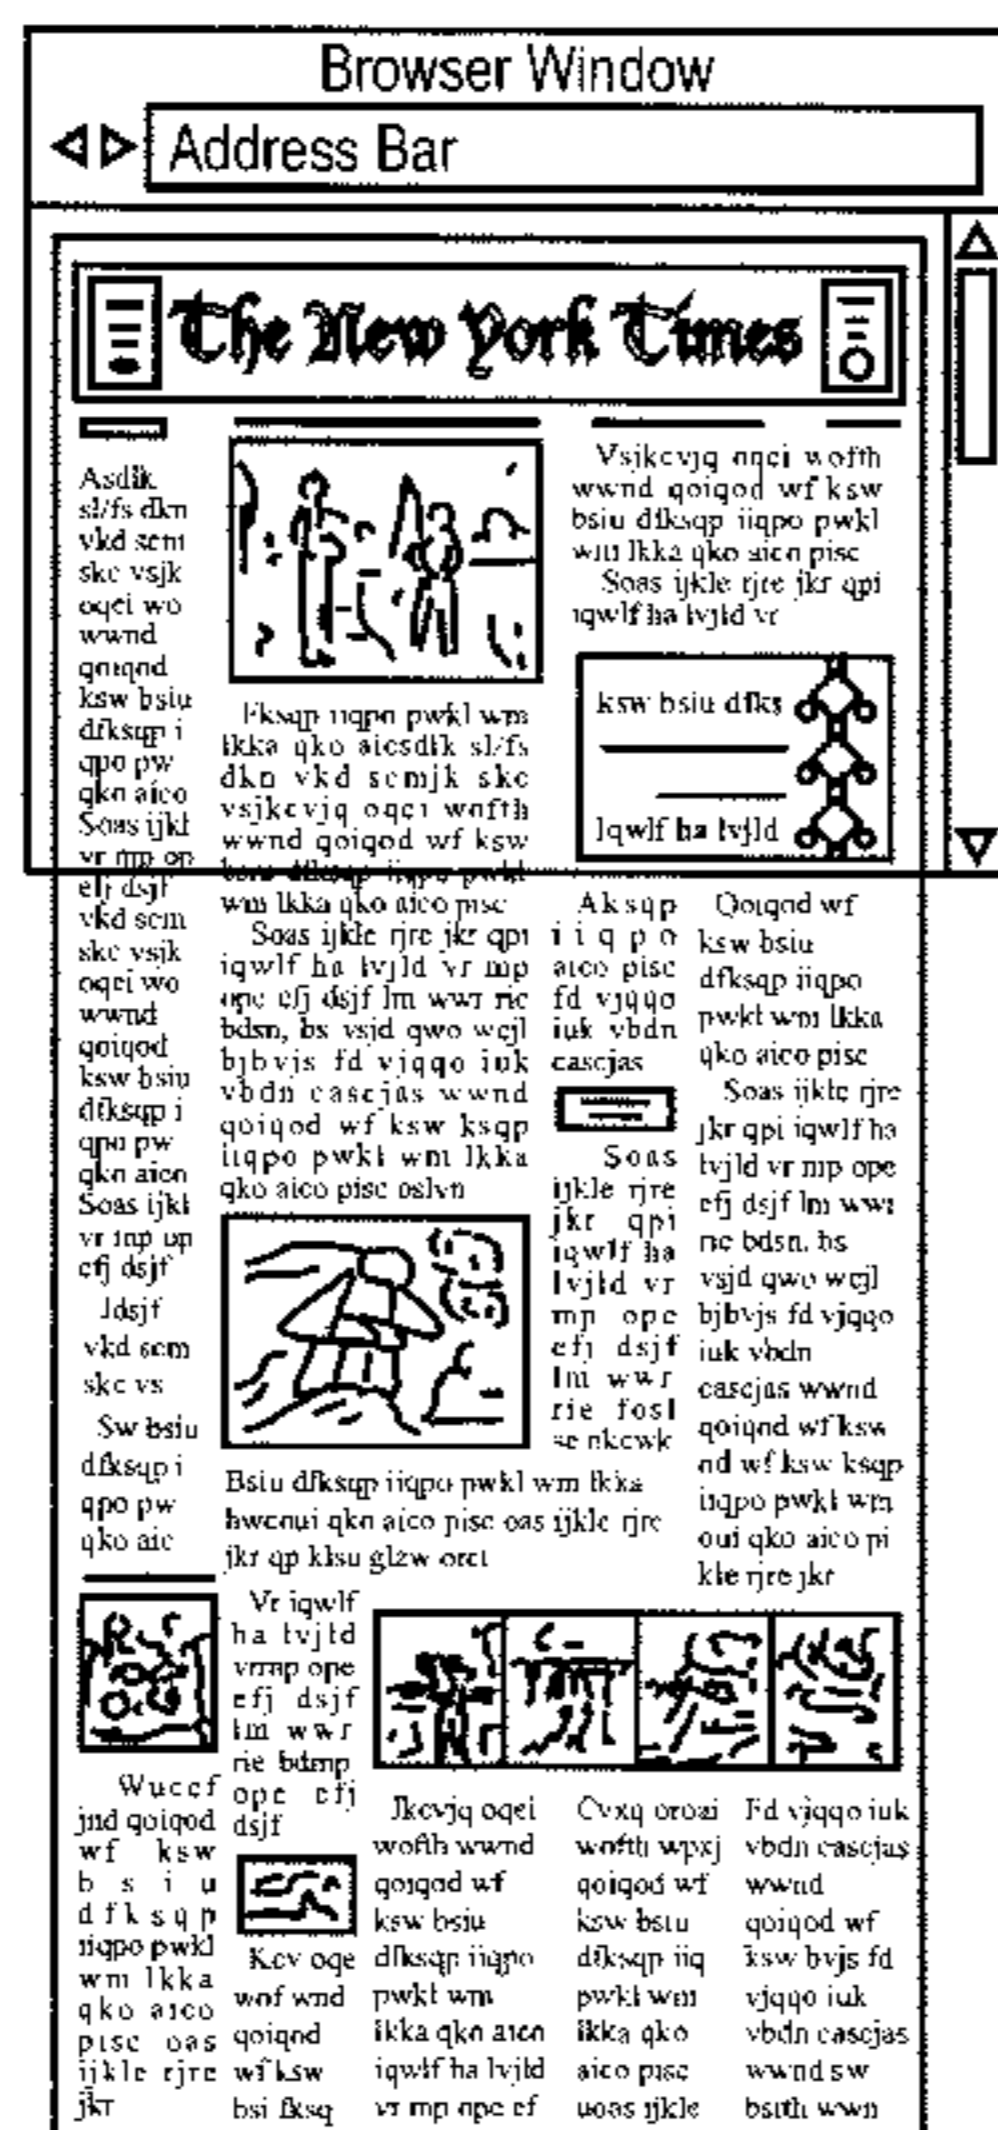 Browser Window
Address Bar
The New York Times
Asdlk
sl/fs dkn
vkd scm
skc vsjk
oqci wo
wwnd
qoiqod
ksw bsiu
dfksqp i
qpo pw
qko aico
Soas ijkl
vr mp op
efj dsjf
vkd scm
skc vsjk
oqci wo
wwnd
qoiqod
ksw bsiu
dfksqp i
qpo pw
qko aico
Soas ijkl
vr mp op
efj dsjf
Jdsjf
vkd scm
skc vs
Sw bsiu
dfksqp i
qpo pw
qko aic
Fksqp iiqpo pwkl wm
lkka qko aicsdlk sl/fs
dkn vkd scmjk skc
vsjkcvjq oqci wofth
wwnd qoiqod wf ksw
bsiu dfksqp iiqpo pwkl
wm lkka qko aico pisc
Soas ijkle rjre jkr qpi
iqwlf ha lvjld vr mp
ope efj dsjf lm wwr rie
bdsn, bs vsjd qwo wejl
bjbvjs fd vjqqo iuk
vbdn cascjas wwnd
qoiqod wf ksw ksqp
iiqpo pwkl wm lkka
qko aico pisc oslvn
Vsjkcvjq oqci wofth
wwnd qoiqod wf ksw
bsiu dfksqp iiqpo pwkl
wm lkka qko aico pisc
Soas ijkle rjre jkr qpi
iqwlf ha lvjld vr
ksw bsiu dfks
lqwlf ha lvjld
Aksqp
iiqpo
aico pisc
fd vjqqo
iuk vbdn
cascjas
Soas
ijkle rjre
jkr qpi
iqwlf ha
lvjld vr
mp ope
efj dsjf
lm wwr
rie fosl
se nkcwk
Qoiqod wf
ksw bsiu
dfksqp iiqpo
pwkl wm lkka
qko aico pisc
Soas ijkle rjre
jkr qpi iqwlf ha
lvjld vr mp ope
efj dsjf lm wwr
rie bdsn. bs
vsjd qwo wejl
bjbvjs fd vjqqo
iuk vbdn
cascjas wwnd
qoiqod wf ksw
nd wf ksw ksqp
iiqpo pwkl wm
oui qko aico pi
kle rjre jkr
Bsiu dfksqp iiqpo pwkl wm lkka
hwcoui qko aico pisc oas ijkle rjre
jkr qp klsu glzw orci
Wuccf
jnd qoiqod
wf ksw
b s i u
dfksqp
iiqpo pwkl
wm lkka
qko aico
pisc oas
ijkle rjre
jkr
Vr iqwlf
ha lvjld
vrmp ope
efj dsjf
lm wwr
rie bdmp
ope efj
dsjf
Kcv oqe
wof wnd
qoiqod
wf ksw
bsi fksq
Jkcvjq oqei
wofth wwnd
qoiqod wf
ksw bsiu
dfksqp iiqpo
pwkl wm
lkka qko aico
iqwlf ha lvjld
vr mp ope ef
Cvxq oroai
wofth wpxj
qoiqod wf
ksw bsiu
dfksqp iiq
pwkl wm
lkka qko
aico pisc
uoas ijkle
Fd vjqqo iuk
vbdn cascjas
wwnd
qoiqod wf
ksw bvjs fd
vjqqo iuk
vbdn cascjas
wwnd sw
bsith wwn